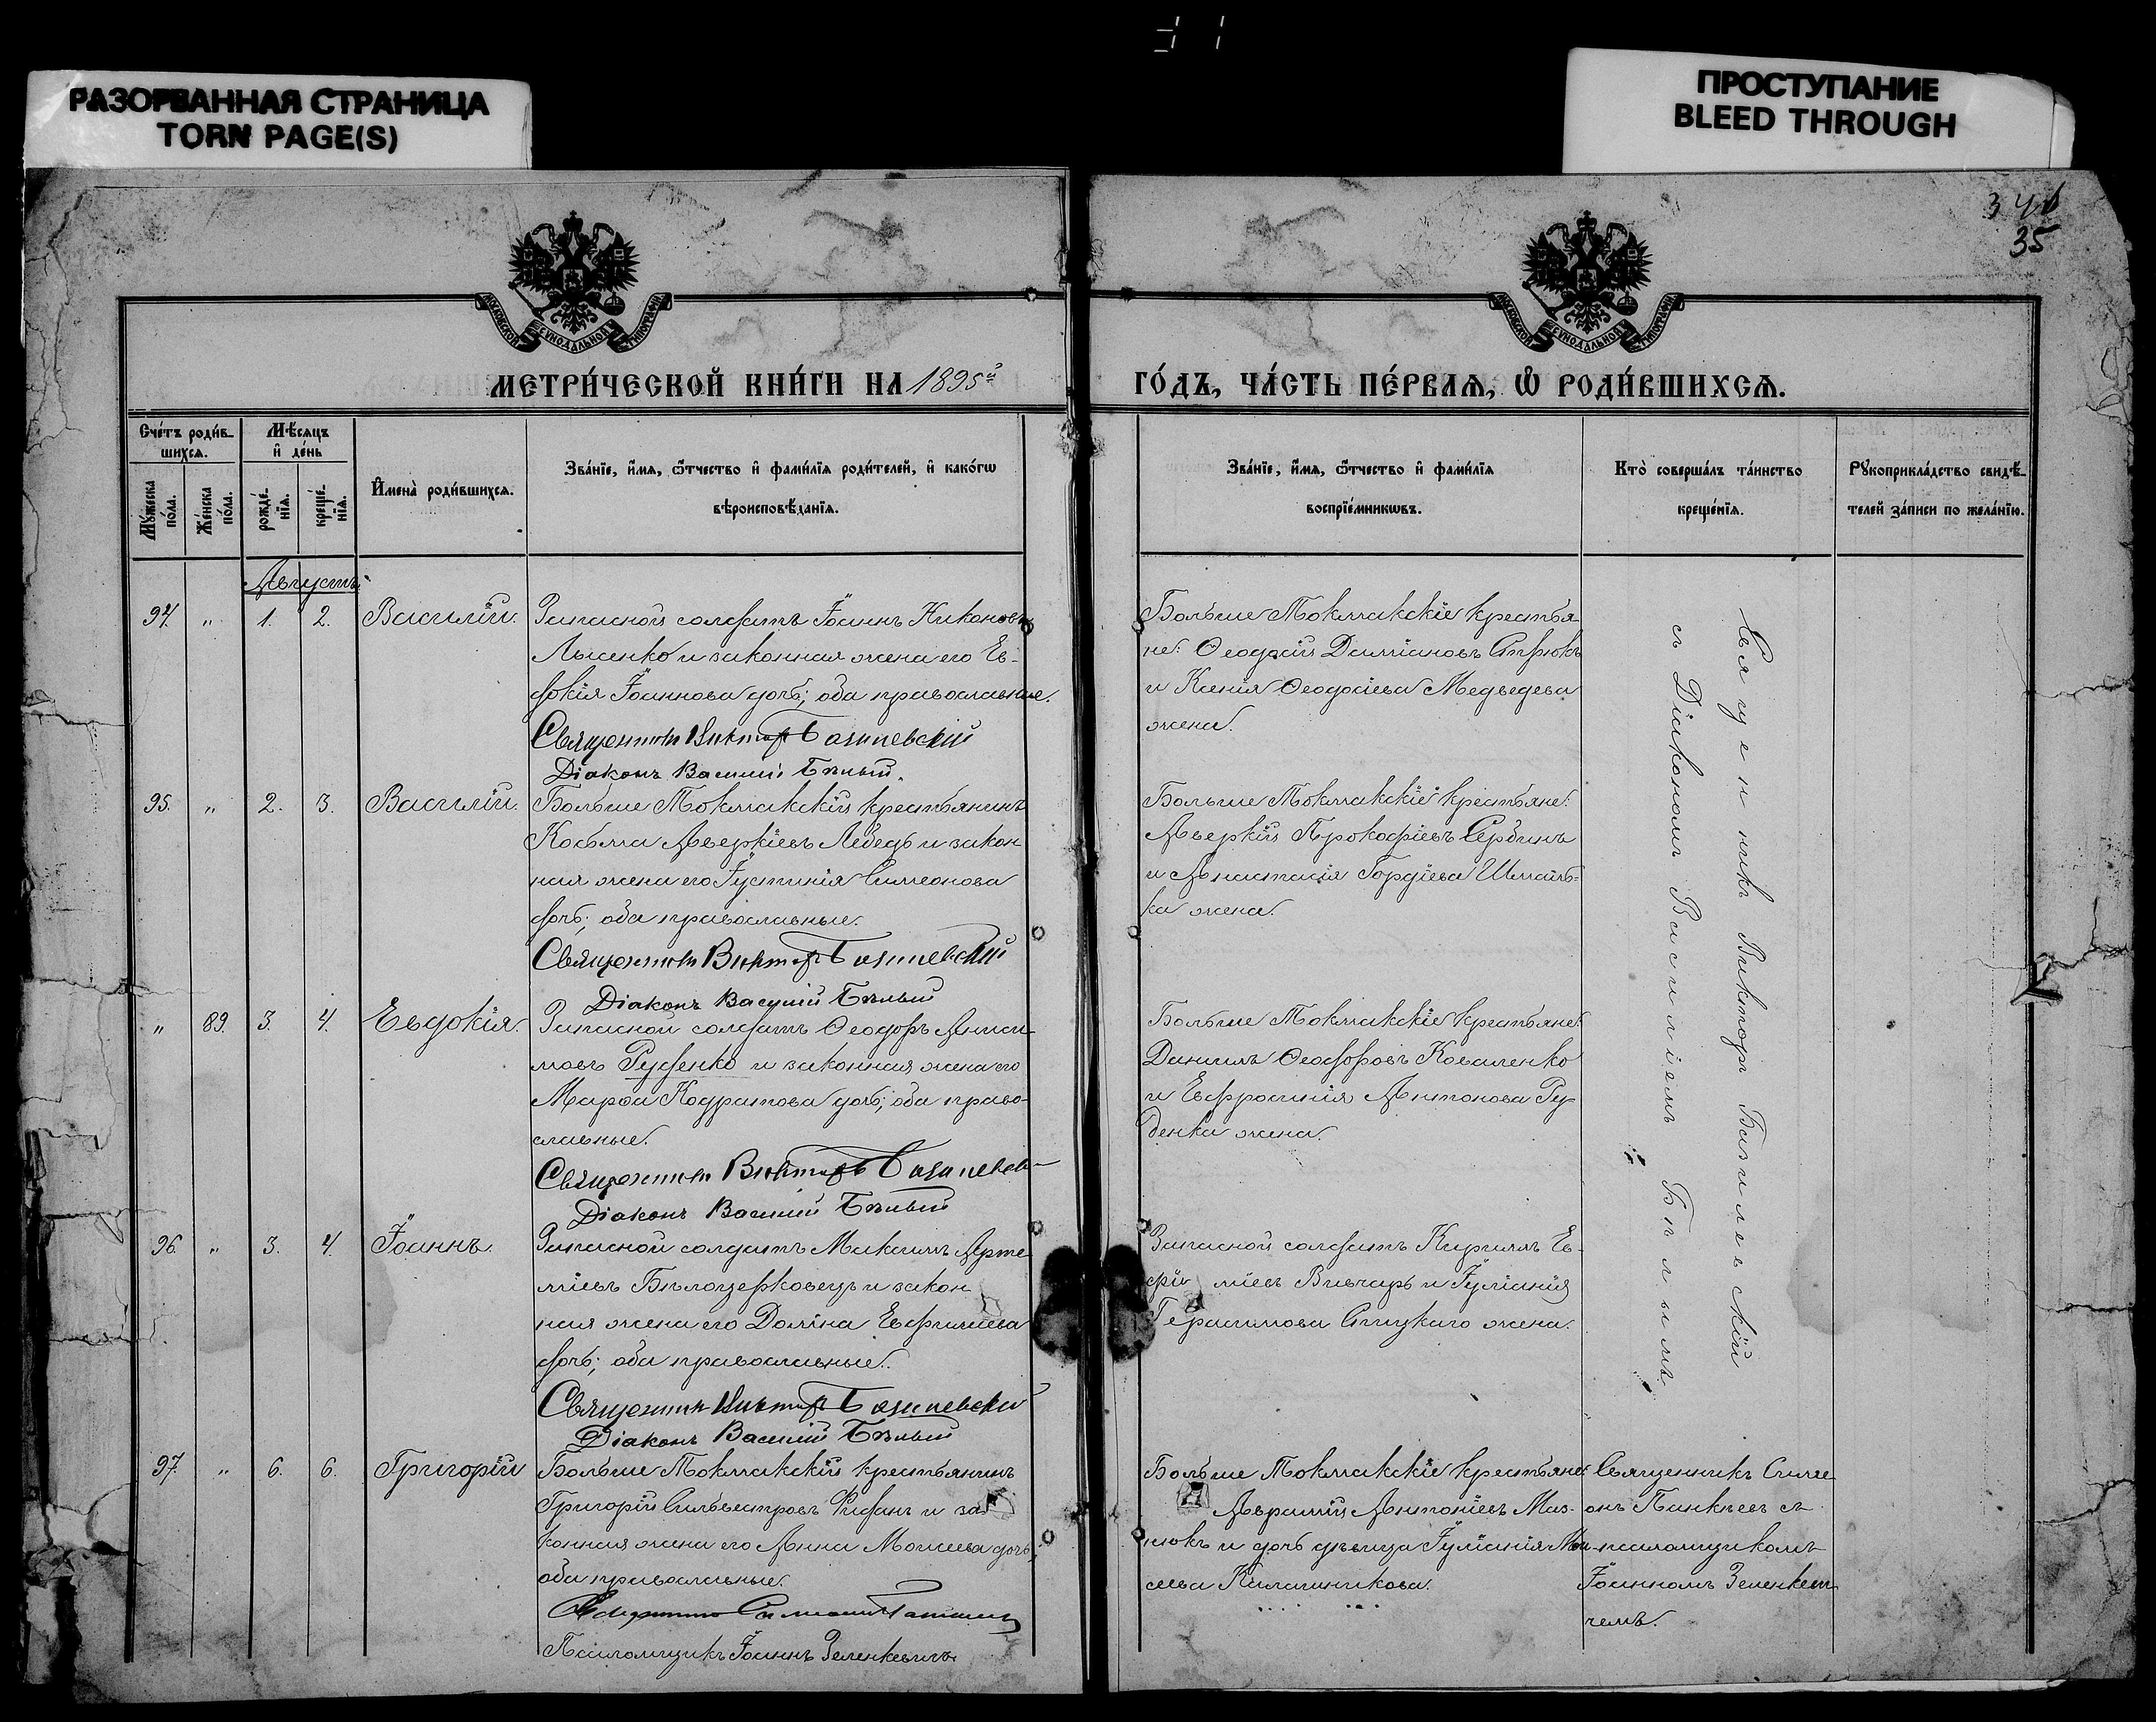 РАЗОРВАННАЯ СТРАНИЦА
TORN PAGE(S)
ПРОСТУПАНИЕ
BLEED THROUGH
35
МОСКОВСКОЙ СѴНОДАЛЬНОЙ ТИПОГРАФІИ
МОСКОВСКОЙ СѴНОДАЛЬНОЙ ТИПОГРАФІИ
МЕТРИ́ЧЕСКОЙ КНИ́ГИ НА 1895й
ГО́ДЪ, ЧА́СТЬ ПЕ́РВАЯ, Ѡ РОДИ́ВШИХСЯ.
Сче́тъ роди́в-
шихся.
Мѣ́сяцъ
и҆ де́нь
Мꙋ́жеска
по́ла.
Же́нска
по́ла.
рожде́-
нїя.
креще́-
нїя.
И҆мена̀ роди́вшихся.
Зва́нїе, и҆́мя, ѻ҆́тчество и҆ фами́лїя роди́телей, и҆ како́гѡ
вѣроисповѣ́данїя.
Зва́нїе, и҆́мя, ѻ҆́тчество и҆ фами́лїя
воспрїе́мникѡвъ.
Кто̀ соверша́лъ та́инство
креще́нїя.
Рꙋкоприкла́дство свидѣ́-
телей за́писи по жела́нїю.
Августъ
94. " 1. 2. Василій.
Запасной солдатъ Іоаннъ Никоновъ
Лысенко и законная жена его Ев-
докія Іоаннова дочь; оба православные.
Священникъ Викторъ Базилевскій
Діаконъ Василій Бѣлый.
Больше Токмакскіе крестья-
не: Ѳеодосій Даміановъ
и Ксенія Ѳеодосіева Медведева
жена.
95. " 2. 3. Василій.
Больше Токмакскій крестьянинъ
Косьма Аверкіевъ Лебедь и закон
ная жена его Іустинія Симеонова
дочь; оба православные.
Священникъ Викторъ Базилевскій
Діаконъ Василій Бѣлый
Больше Токмакскіе крестьяне:
Аверкій Прокофіевъ Сербинъ
и Анастасія Гордіева Шмать-
ка жена.
" 89. 3. 4. Евдокія.
Запасной солдатъ Ѳеодоръ Аниси-
мовъ Руденко и законная жена его
Марѳа Кодратова дочь; оба право-
славные.
Священникъ Викторъ Базилевск
Діаконъ Василій Бѣлый
Больше Токмакскіе крестьяне:
Даніилъ Ѳеодоровъ Коваленко
и Евфросинія Антонова Ру-
денка жена.
96. " 3. 4. Іоаннъ.
Запасной солдатъ Максимъ Арте-
міевъ Бѣлоцерковецъ и закон
ная жена его Домна Евфиміева
дочь; оба православные.
Священникъ Викторъ Базилевскій
Діаконъ Василій Бѣлый
Запасной солдатъ Кириллъ Ев-
фи міевъ Вивчарь и Іуліанія
Герасимова жена.
Священникъ Викторъ Базилевскій
съ Діакономъ Василіемъ Бѣлымъ.
97. " 6. 6. Григорій
Больше Токмакскій крестьянинъ
Григорій Сильвестровъ и за
конная жена его Анна Моисеева дочь;
оба православные.
Псаломщикъ Іоаннъ Зеленкевичъ
Больше Токмакскіе крестьяне:
Аврамій Антоніевъ Маз-
нюкъ и дочь дѣвица Іуліанія Мои-
сеева Калашникова.
Священникъ Симе
онъ Панкѣевъ съ
псаломщикомъ
Іоанномъ Зеленкеви
чемъ.